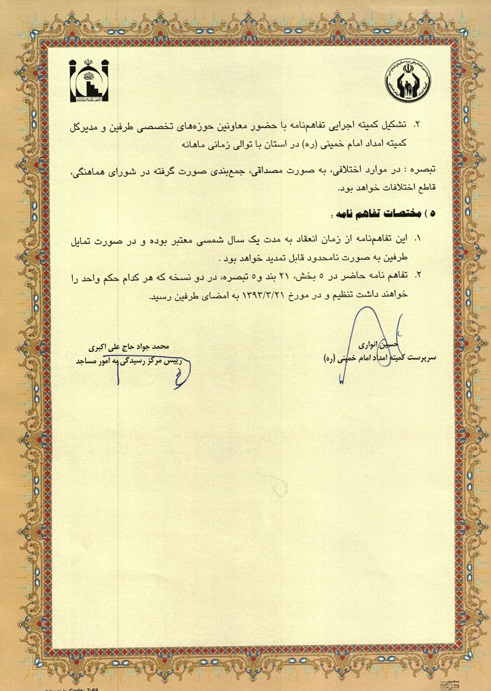 ۲. تشکیل کمیته اجرایی تفاهم‌نامه با حضور معاونین حوزه‌های تخصصی طرفین و مدیرکل
کمیته امداد امام خمینی (ره) در استان با توالی زمانی ماهانه
تبصره : در موارد اختلافی، به صورت مصداقی، جمع‌بندی صورت گرفته در شورای هماهنگی،
قاطع اختلافات خواهد بود.
۵ ) مختصات تفاهم نامه :
۱. این تفاهم‌نامه از زمان انعقاد به مدت یک سال شمسی معتبر بوده و در صورت تمایل
طرفین به صورت نامحدود قابل تمدید خواهد بود .
۲. تفاهم نامه حاضر در ۵ بخش، ۲۱ بند و۵ تبصره، در دو نسخه که هر کدام حکم واحد را
خواهند داشت تنظیم و در مورخ ۱۳۹۳/۳/۲۱ به امضای طرفین رسید.
حسین انواری
سرپرست کمیته امداد امام خمینی (ره)
محمد جواد حاج علی اکبری
رییس مرکز رسیدگی به امور مساجد